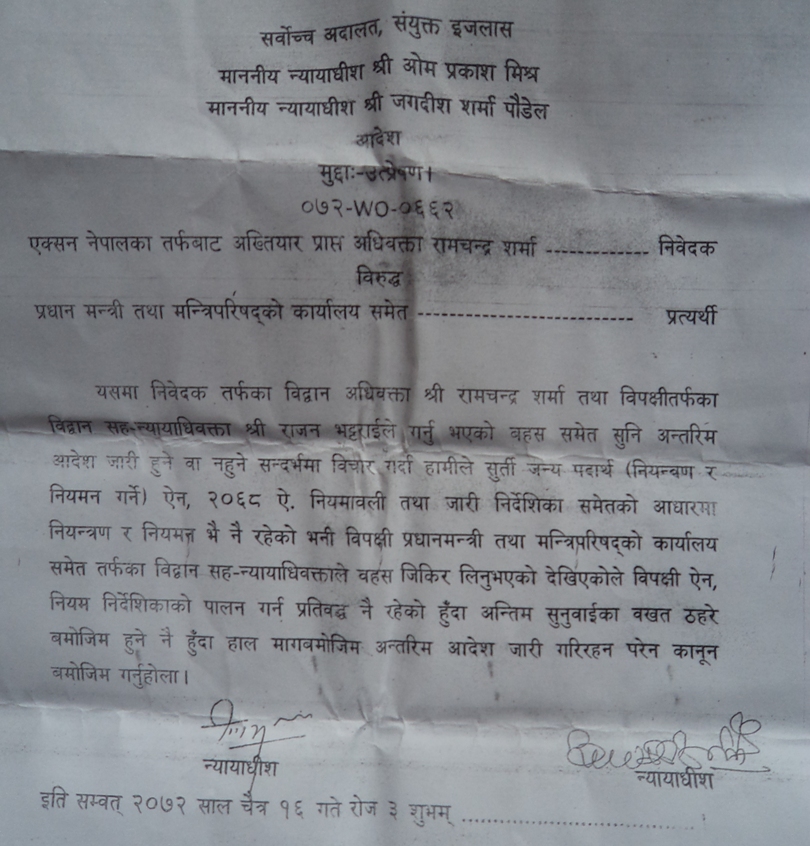 सर्वोच्च अदालत, संयुक्त इजलास
माननीय न्यायाधीश श्री ओम प्रकाश मिश्र
माननीय न्यायाधीश श्री जगदीश शर्मा पौडेल
आदेश
मुद्दाः-उत्प्रेषण।
०७२-WO-०६६२
एक्सन नेपालका तर्फबाट अख्तियार प्राप्त अधिवक्ता रामचन्द्र शर्मा ------------- निवेदक
विरुद्ध
प्रधान मन्त्री तथा मन्त्रिपरिषद्को कार्यालय समेत --------------------------- प्रत्यर्थी
यसमा निवेदक तर्फका विद्वान अधिवक्ता श्री रामचन्द्र शर्मा तथा विपक्षीतर्फका
विद्वान सह-न्यायाधिवक्ता श्री राजन भट्टराईले गर्नु भएको वहस समेत सुनि अन्तरिम
आदेश जारी हुने वा नहुने सन्दर्भमा विचार गर्दा हामीले सुर्ती जन्य पदार्थ (नियन्त्रण र
नियमन गर्ने) ऐन, २०६८ ऐ. नियमावली तथा जारी निर्देशिका समेतको आधारमा
नियन्त्रण र नियमन भै नै रहेको भनी विपक्षी प्रधानमन्त्री तथा मन्त्रिपरिषद्को कार्यालय
समेत तर्फका विद्वान सह-न्यायाधिवक्ताले वहस जिकिर लिनुभएको देखिएकोले विपक्षी ऐन,
नियम निर्देशिकाको पालन गर्न प्रतिवद्ध नै रहेको हुँदा अन्तिम सुनुवाईका वखत ठहरे
वमोजिम हुने नै हुँदा हाल मागवमोजिम अन्तरिम आदेश जारी गरिरहन परेन कानून
वमोजिम गर्नुहोला।
न्यायाधीश
न्यायाधीश
इति सम्वत् २०७२ साल चैत्र १६ गते रोज ३ शुभम् ..............................